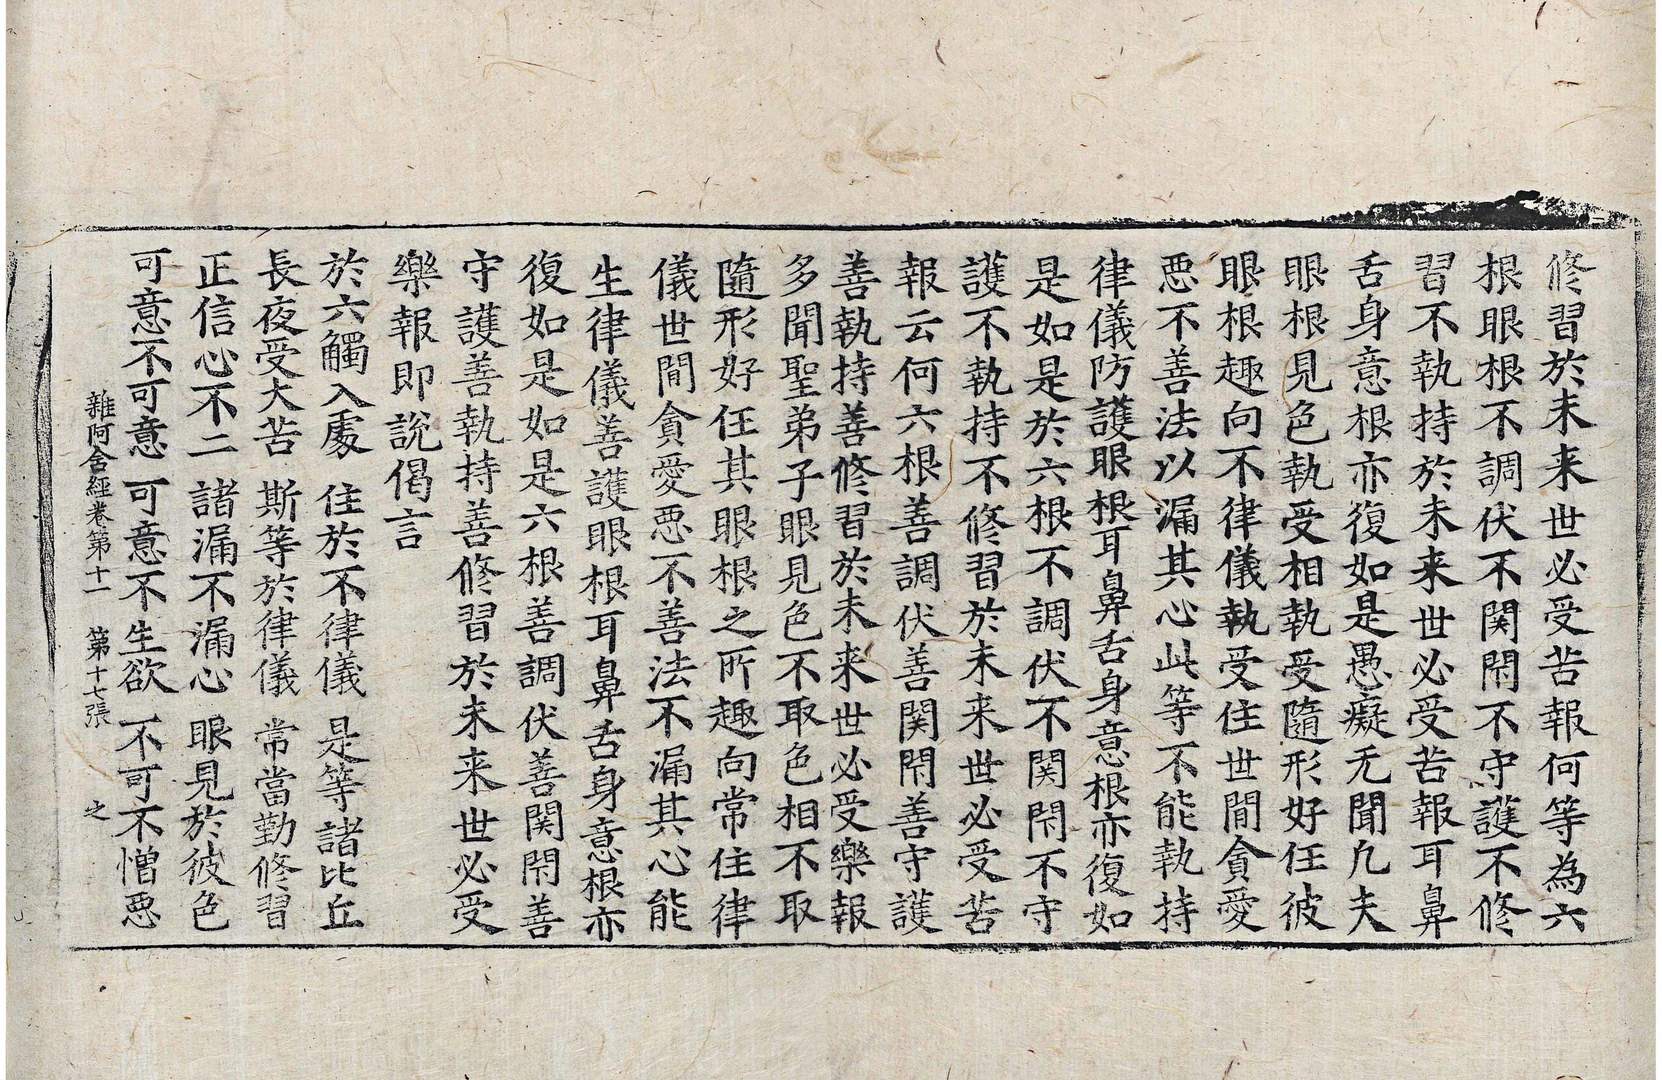 修習於未来世必受苦報何等為六
根眼根不調伏不関閇不守護不修
習不執持於未来世必受苦報耳鼻
舌身意根亦復如是愚癡无聞凢夫
眼根見色執受相執受隨形好任彼
眼根趣向不律儀執受住世間貪愛
悪不善法以漏其心此等不能執持
律儀防護眼根耳鼻舌身意根亦復如
是如是於六根不調伏不関閇不守
護不執持不修習於未来世必受苦
報云何六根善調伏善関閇善守護
善執持善修習於未来世必受樂報
多聞聖弟子眼見色不取色相不取
隨形好任其眼根之所趣向常住律
儀世間貪愛悪不善法不漏其心能
生律儀善護眼根耳鼻舌身意根亦
復如是如是六根善調伏善関閇善
守護善執持善修習於未来世必受
樂報即說偈言
於六觸入處 住於不律儀 是等諸比丘
長夜受大苦 斯等於律儀 常當勤修習
正信心不二 諸漏不漏心 眼見於彼色
可意不可意 可意不生欲 不可不憎悪
雜阿含經卷第十一 第十七張 之